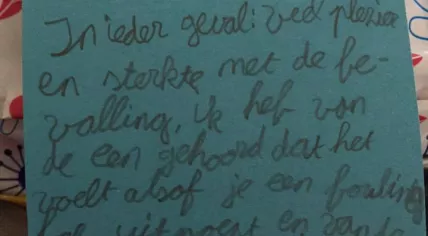 In ieder geval: veel plezier
en sterkte met de be-
valling, ik heb van
de een gehoord dat het
voelt alsof je een bowling
bal uit poept en van de